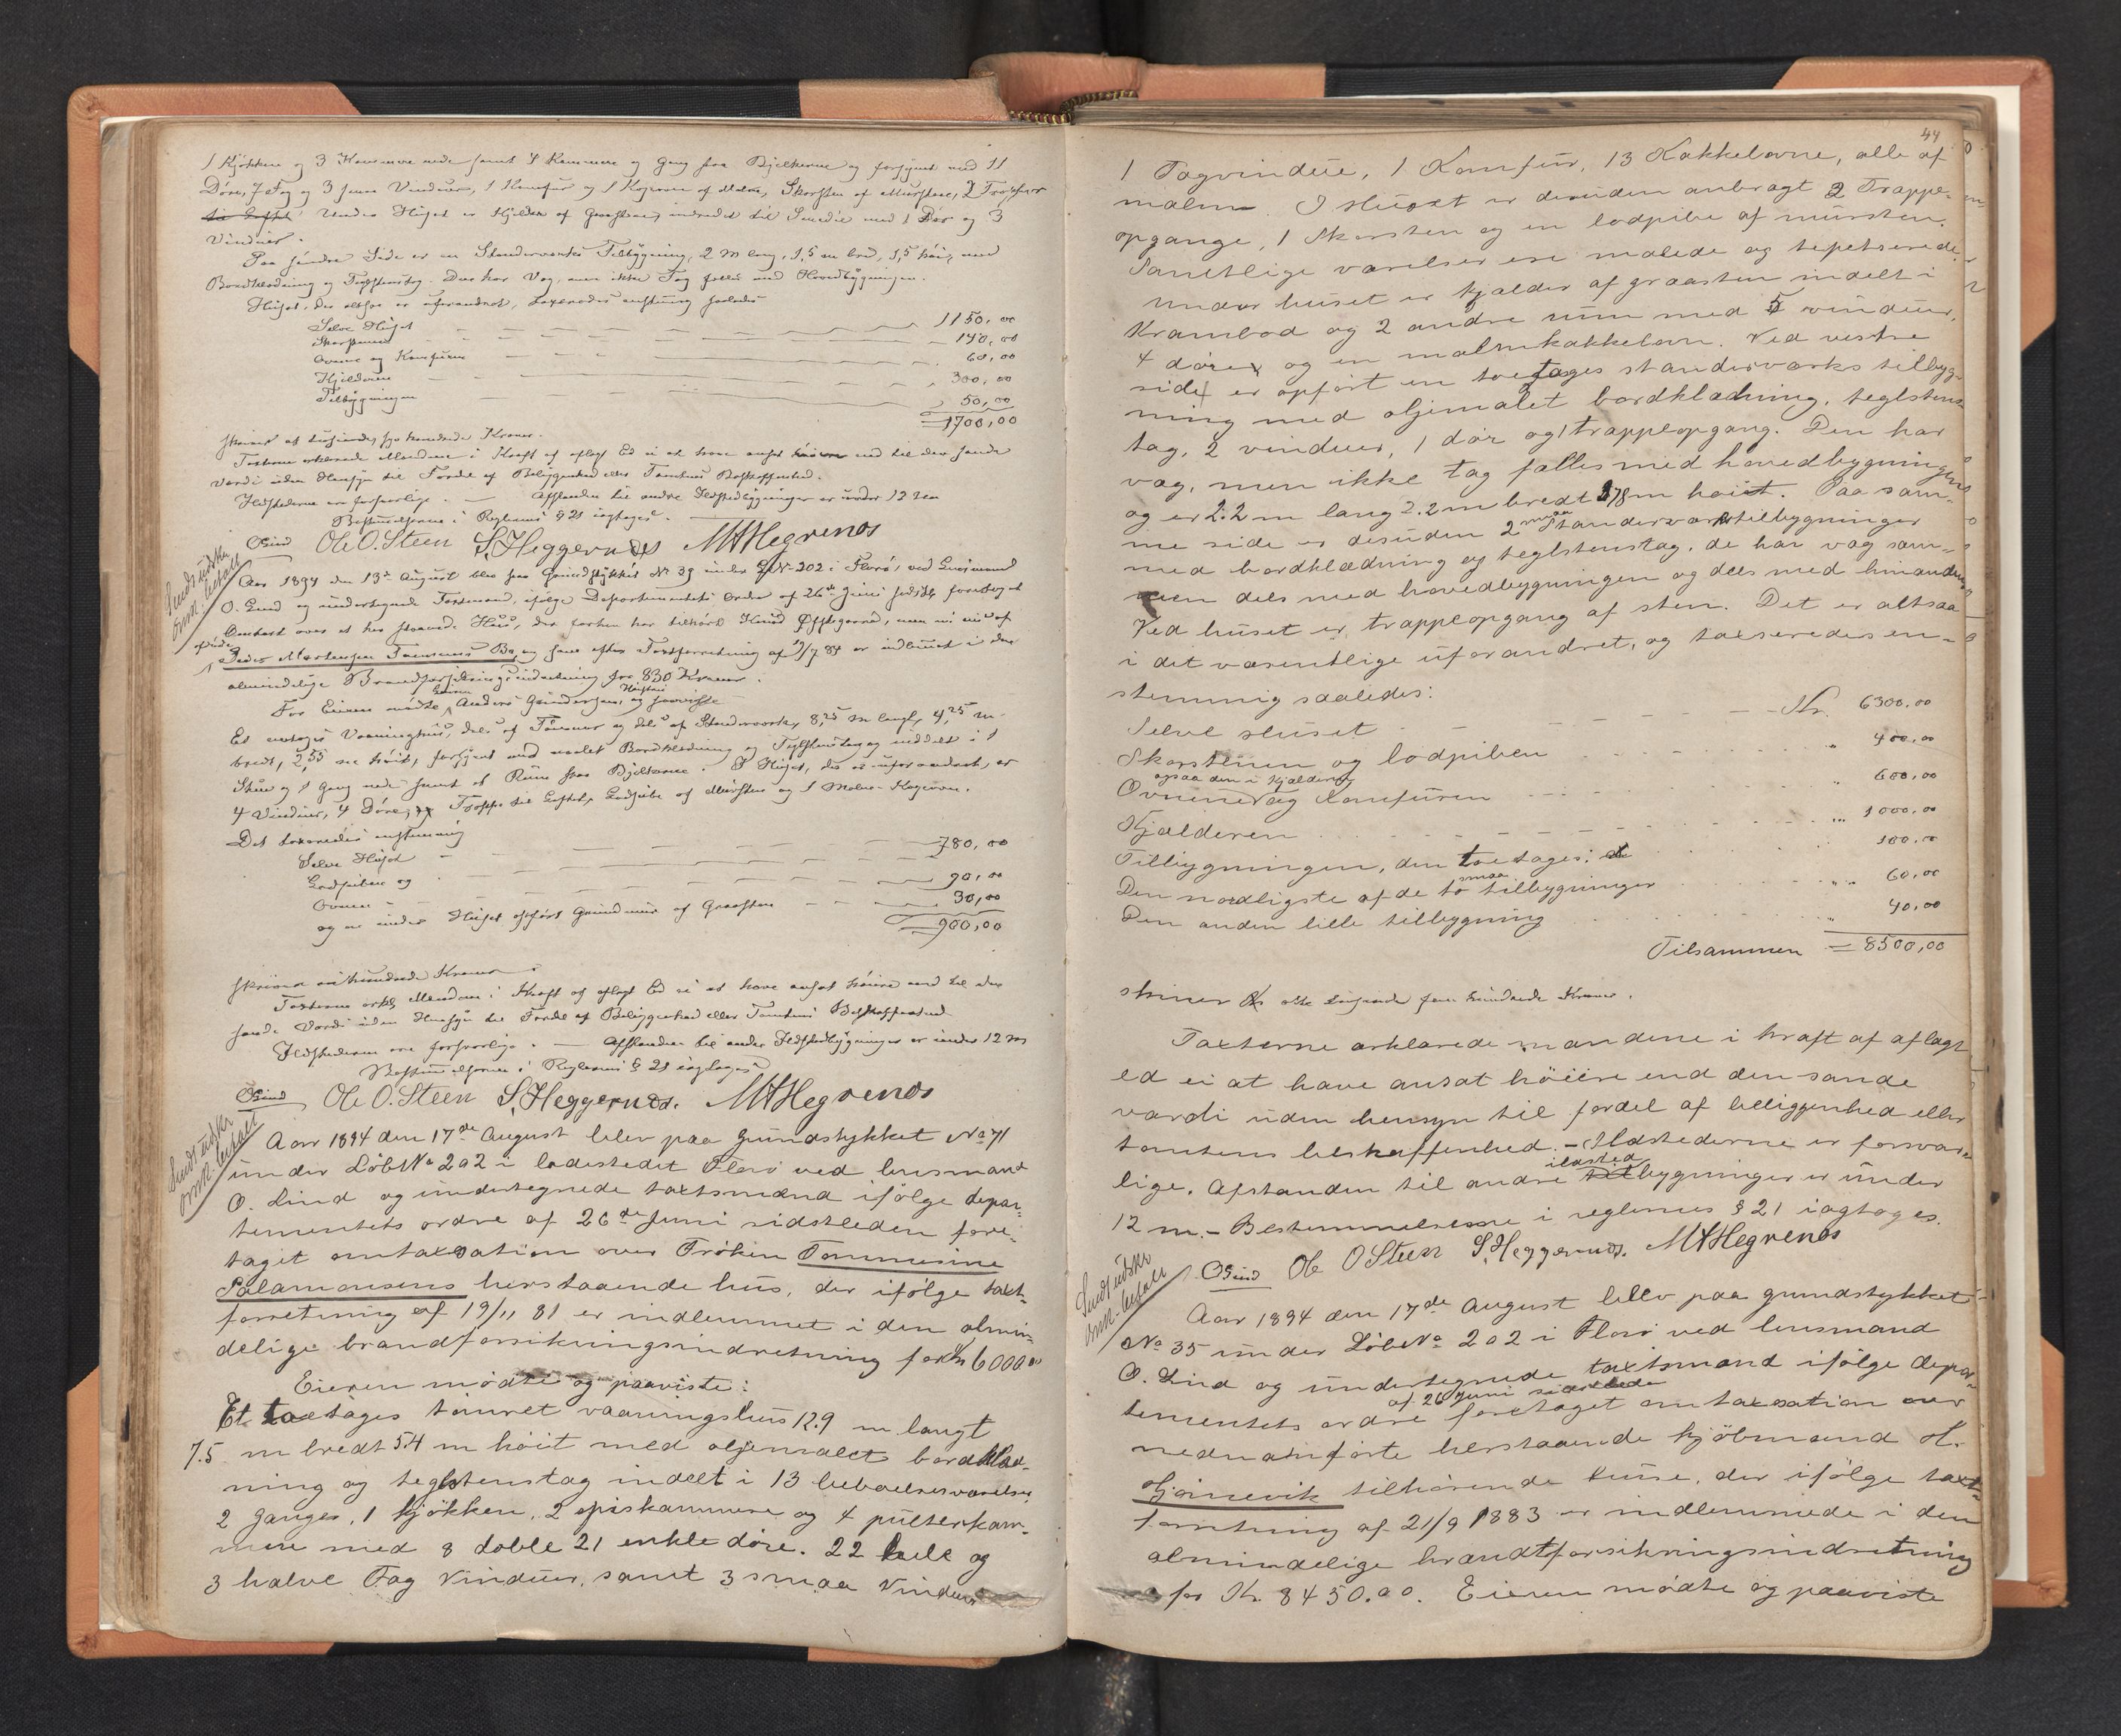 1 Kjøkken og 3 Kammere nede samt 4 Kammere og Gang paa Bjelkerne og forsynet med 11
Døre, 7 Fag og 3 smaa Vinduer, 1 Komfur og 1 Kogeovn af Malm, Skorsten af Mursten, 2 Trapper
Under Huset er Kjelder af Graasten, indredet til Smedie med 1 Dør og 3
Vinduer.
Paa søndre Side er en Standerværks Tilbygning, 2 m lang, 1,5 m bred, 1,5 høi, med
Bordklædning og Teglstenstag. Den har Væg, men ikke Tag fælles med Hovedbygningen.
Huset, der altsaa er uforandret, taxeredes enstemmig saaledes
Selve Huset 1150,00
Skorstenen 140,00
Ovnene og Komfuren 60,00
Kjelderen 300,00
Tilbygningen 50,00
=1700,00
skriver et tusinde syv hundrede Kroner.
Taxterne erklærede Mændene i Kraft af aflagt Ed ei at have ansat høiere end til den sande
Værdi uden Hensyn til Fordel af Beliggenhed eller Tomtens Beskaffenhed.
Ildstederne ere forsvarlige. — Afstanden til andre Ildstedbygninger er under 12 m
Bestemmelserne i Reglernes § 21 iagtages.
OLind Ole O. Steen S. Heggernæs MAHegrenæs
Aar 1894 den 13de August blev paa Grundstykket No 39 under LNo 202 i Florø, ved Lensmand
O. Lind og undertegnede Taxtmænd, ifølge Departementets Ordre af 26de Juni sidstl. foretaget
Omtaxt over et her staaende Hus, der forhen har tilhørt Knud
Peder Mortensen og som efter Taxtforretning af 9/7 84 er indlemmet i den
almindelige Brandforsikringsindretning for 830 Kroner.
For Eieren mødte Anders Gundersen, og paaviste
Et entages Vaaningshus, dels af Tømmer og dels af Standerværk, 8,25 m langt, 4,25 m
bredt, 2,55 m høit, forsynet med malet Bordklædning og Teglstenstag og inddelt i 1
Stue og 1 Gang nede samt et Rum paa Bjelkerne. I Huset, der er uforandret, er
4 Vinduer, 4 Døre, Trappe til Loftet, Lodpibe af Mursten og 1 Malm-Kogeovn.
Det taxeredes enstemmig
Selve Huset 780,00
Lodpiben og 90,00
Ovnen 30,00
og er under Huset opført Grundmur af Graasten
=900,00
skriver nihundrede Kroner.
Taxterne erkl. Mændene i Kraft af aflagt Ed ei at have ansat høiere end til den
sande Værdi uden Hensyn til Fordel af Beliggenhed eller Tomtens Beskaffenhed.
Ildstederne ere forsvarlige. — Afstanden til andre Ildstedbygninger er under 12 m
Bestemmelserne i Reglernes § 21 iagtages
OLind Ole O. Steen S. Heggernæs. MAHegrenæs
Aar 1894 den 17de August blev paa grundstykket No 71
under LøbeNo 202 i ladestedet Florø ved lensmand
O. Lind og undertegnede taxtsmænd ifølge depar-
tementets ordre af 26de Juni sidstleden fore-
taget omtaxsation over Frøken Tommesine
Salamonsens herstaaende hus, der ifølge taxt-
forretning af 19/11 81 er indlemmet i den almin-
delige brandforsikringsindretning for Kr 6000,00
Eieren mødte og paaviste:
Et toetages tømret vaaningshus 12.9 m langt
7.5 m bredt 5.4 m høit med oljemalet bordklæd-
ning og teglstenstag indelt i 13 beboelsesværelser,
2 gange, 1 kjøkken, 2 spiskammere og 4 pulterkam-
mere med 8 doble 21 enkle døre. 22 hele og
3 halve Fag Vinduer, samt 3 smaa Vinduer
44
1 Tagvindue, 1 Komfur, 13 Kakkelovne, alle af
malm. I Huset er desuden anbragt 2 Trappe-
opgange, 1 Skorsten og en lodpibe af mursten.
Samtlige værelser ere malede og tepetserede.
Under huset er kjælder af graasten indelt i
Krambod og 2 andre rum med 5 vinduer,
4 døre og en malmkakkelovn. Ved vestre
side er opført en toetages standerværks tilbyg-
ning med oljemalet bordklædning, teglstens
tag, 2 vinduer, 1 dør og 1 trappeopgang. Den har
væg, men ikke tag fælles med hovedbygningen
og er 2.2 m lang 2.2 m bredt 3.78 m høiet. Paa sam-
me side er desuden 2 smaa standerværkstilbygninger
med bordklædning og teglstenstag, de har væg sam-
men dels med hovedbygningen og dels med hinanden
Ved huset er trappeopgang af sten. Det er altsaa
i det væsentlige uforandret, og taxseredes en-
stemmig saaledes:
Selve Huset Kr. 6300.00
Skorstenen og lodpiben " 400,00
Ovnene ogsaa den i kjælderen og Komfuren " 600,00
Kjælderen " 1000,00
Tilbygningen, den toetages 100,00
Den nordligste af de to smaa tilbygninger " 60,00
Den anden lille tilbygning " 40,00
Tilsammen = 8500,00
skriver otte tusinde fem hundrede Kroner.
Taxterne erklærede mændene i kraft af aflagt
ed ei at have ansat høiere end den sande
værdi uden hensyn til fordel af beliggenhed eller
tomtens beskaffenhed. – Ildstederne er forsvar-
lige. Afstanden til andre ildstedbygninger er under
12 m. – Bestemmelserne i reglernes § 21 iagtages.
OLind Ole O Steen S. Heggernæs. MAHegrenæs
Aar 1894 den 17de August blev paa grundstykket
No 35 under LøbeNo 202 i Florø ved lensmand
O. Lind og undertegnede taxtsmænd ifølge depar-
tementets ordre af 26 Juni sidstlede foretaget omtaxsation over
nedenanførte herstaaende kjøbmand
tilhørende huse, der ifølge taxt-
forretning af 21/9 1883 er indlemmede i den
almindelige brandtforsikringsindretning
for Kr. 8450.00. Eieren mødte og paaviste